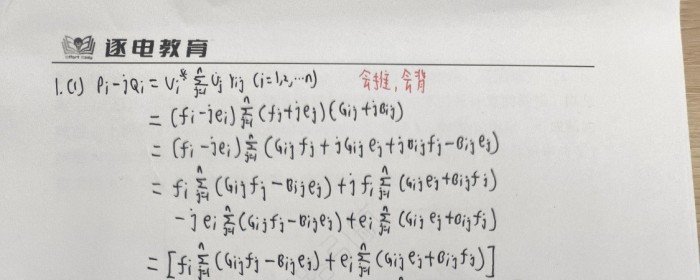 逐电教育
1.(1) Pi-jQi = Vi* ∑(j=1→n) Uj Yij (i=1,2,…n) 会推,会背
= (fi-jei) ∑(j=1→n) (fj+jej)(Gij+jBij)
= (fi-jei) ∑(j=1→n) (Gijfj+jGijej+jBijfj-Bijej)
= fi ∑(j=1→n) (Gijfj-Bijej)+jfi ∑(j=1→n) (Gijej+Bijfj)
-jei ∑(j=1→n) (Gijfj-Bijej)+ei ∑(j=1→n) (Gijej+Bijfj)
= [fi ∑(j=1→n) (Gijfj-Bijej)+ei ∑(j=1→n) (Gijej+Bijfj)]